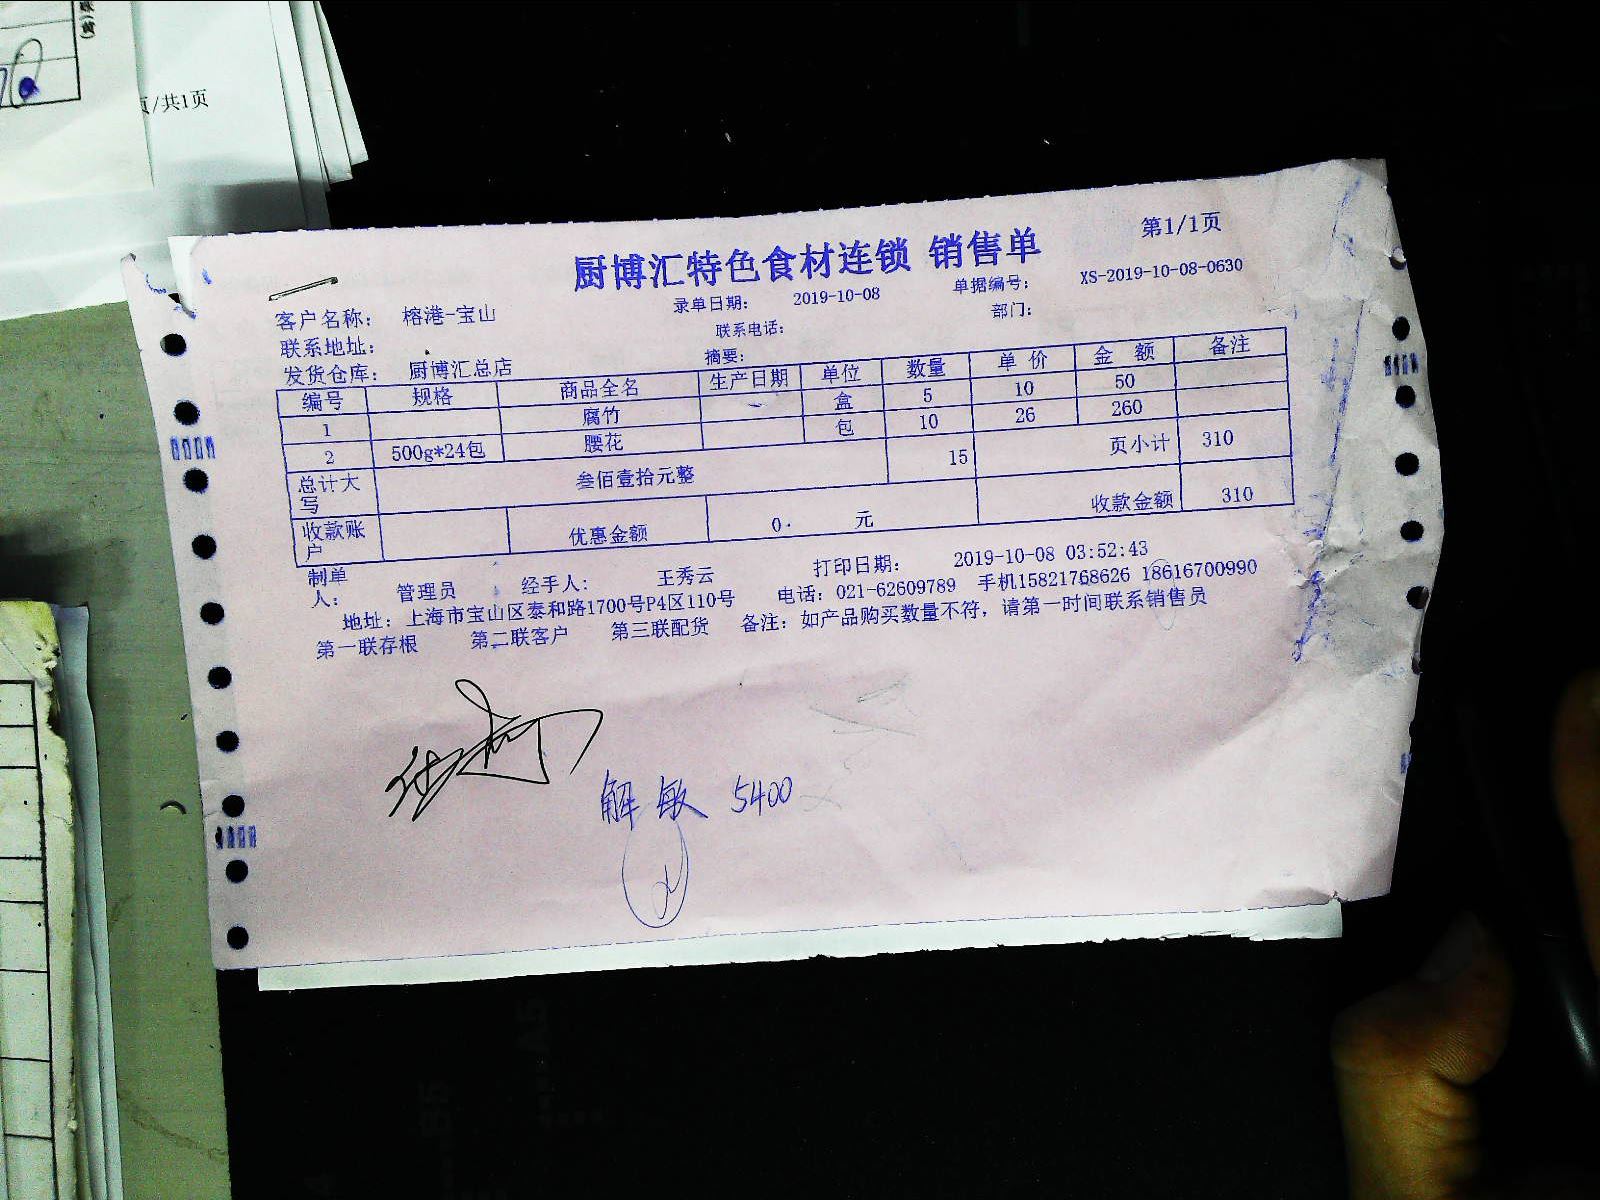 页/共1页
厨博汇特色食材连锁 销售单
第1/1页
客户名称： 榕港-宝山 录单日期： 2019-10-08 单据编号； XS-2019-10-08-0630
联系地址： 联系电话： 部门：
发货仓库： 厨博汇总店 摘要：
编号 规格 商品全名 生产日期 单位 数量 单 价 金 额 备注
1 腐竹 盒 5 10 50
2 500g*24包 腰花 包 10 26 260
总计大写 叁佰壹拾元整 15 页小计 310
收款账户 优惠金额 0. 元 收款金额 310
制单人： 管理员 经手人： 王秀云 打印日期： 2019-10-08 03:52:43
地址：上海市宝山区泰和路1700号P4区110号 电话：021-62609789 手机15821768626 18616700990
第一联存根 第二联客户 第三联配货 备注：如产品购买数量不符，请第一时间联系销售员
解敏 5400